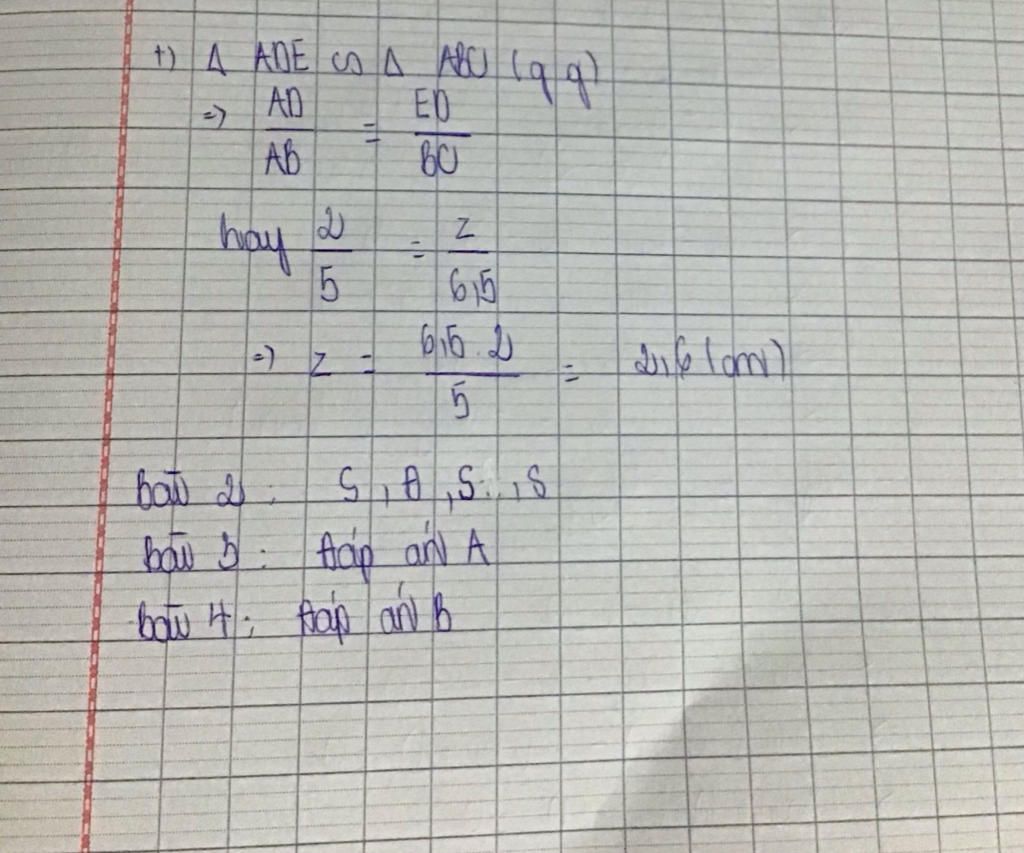 +) Δ ADE ∽ Δ ABC (g g)
=> AD/AB = ED/BC
hay 2/5 = z/6,5
=> z = 6,5.2/5 = 2,6 (cm)
bài 2: S, Đ, S, S
bài 3: Đáp án A
bài 4: Đáp án B